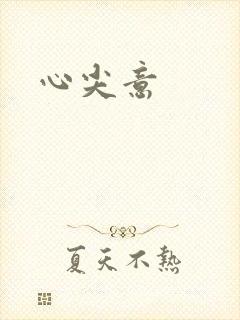 心尖意
夏天不熱